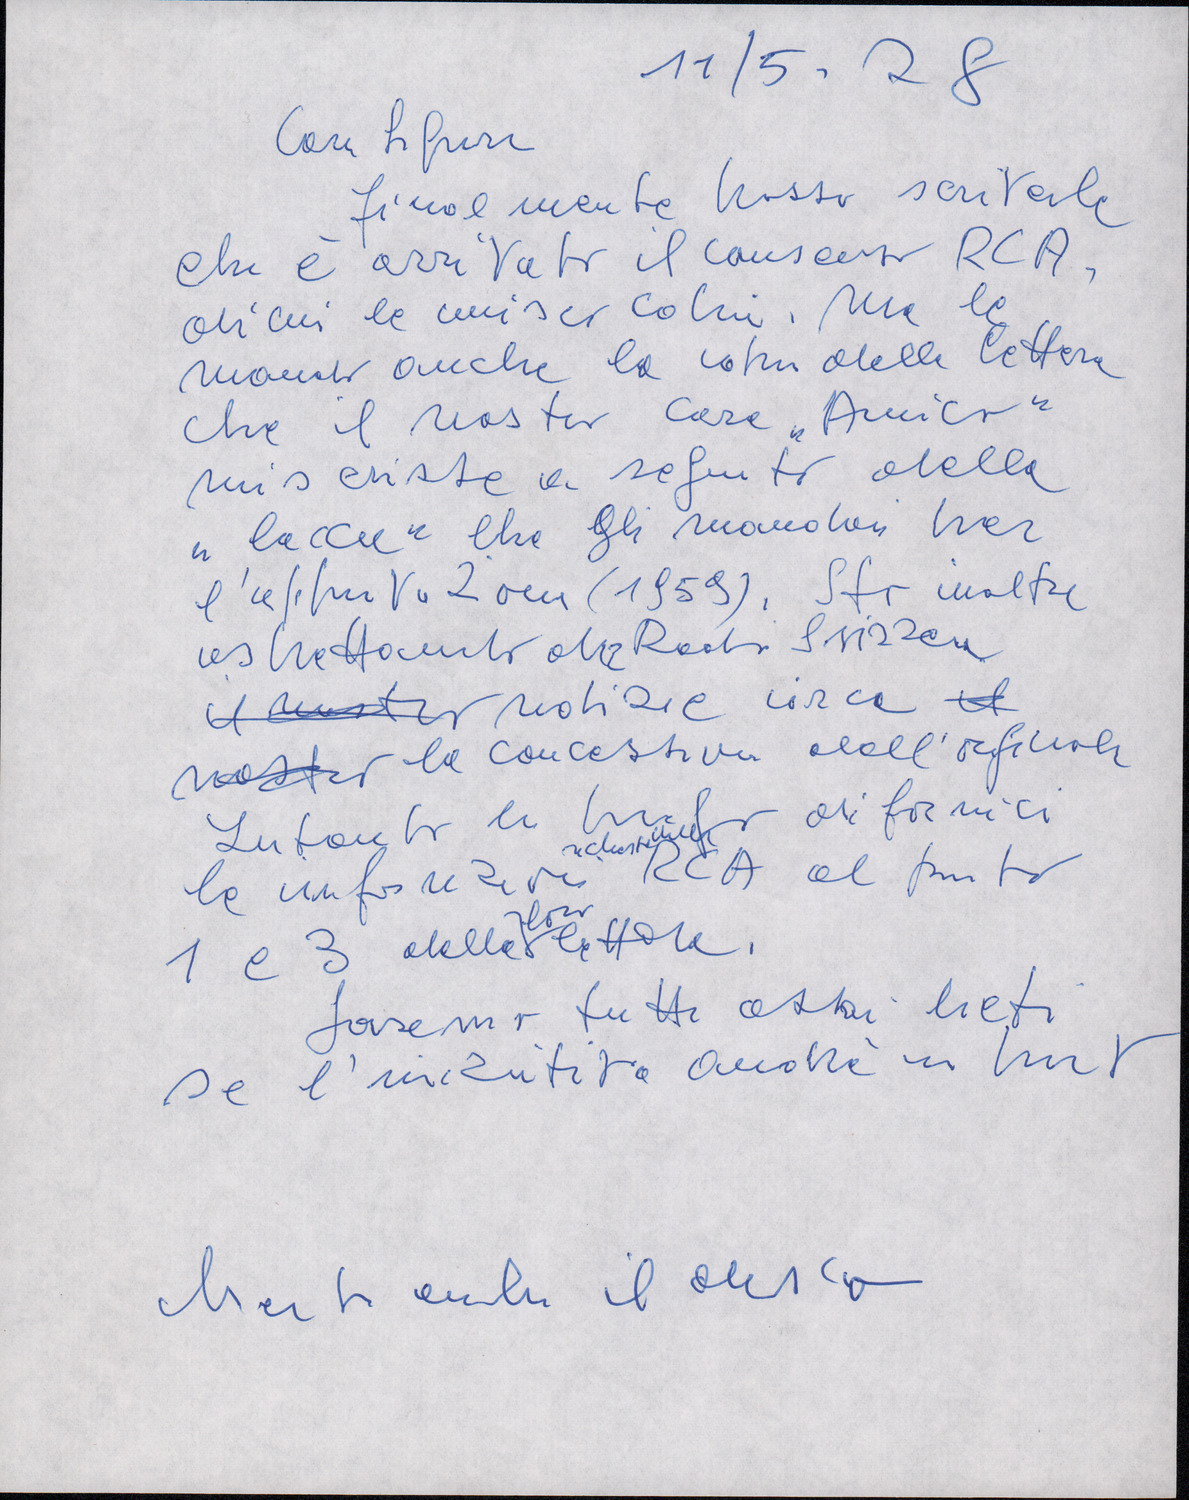 11/5. 78
Cara Signora
finalmente posso scriverle
che è arrivato il consenso RCA,
di cui le unisco copia. Ma le
mando anche la copia della lettera
che il nostro caro "Amico"
mi scrisse a seguito della
"lacca" che gli mandai per
l'approvazione (1959). Sto inoltre
aspettando da Radio Svizzera
il nostro notizie circa il
nostro la concessione dell'originale
Intanto la prego di fornirci
le informazioni richieste RCA al punto
1 e 3 della loro lettera.
Saremo tutti assai lieti
se l'iniziativa andrà in port
anche il disco